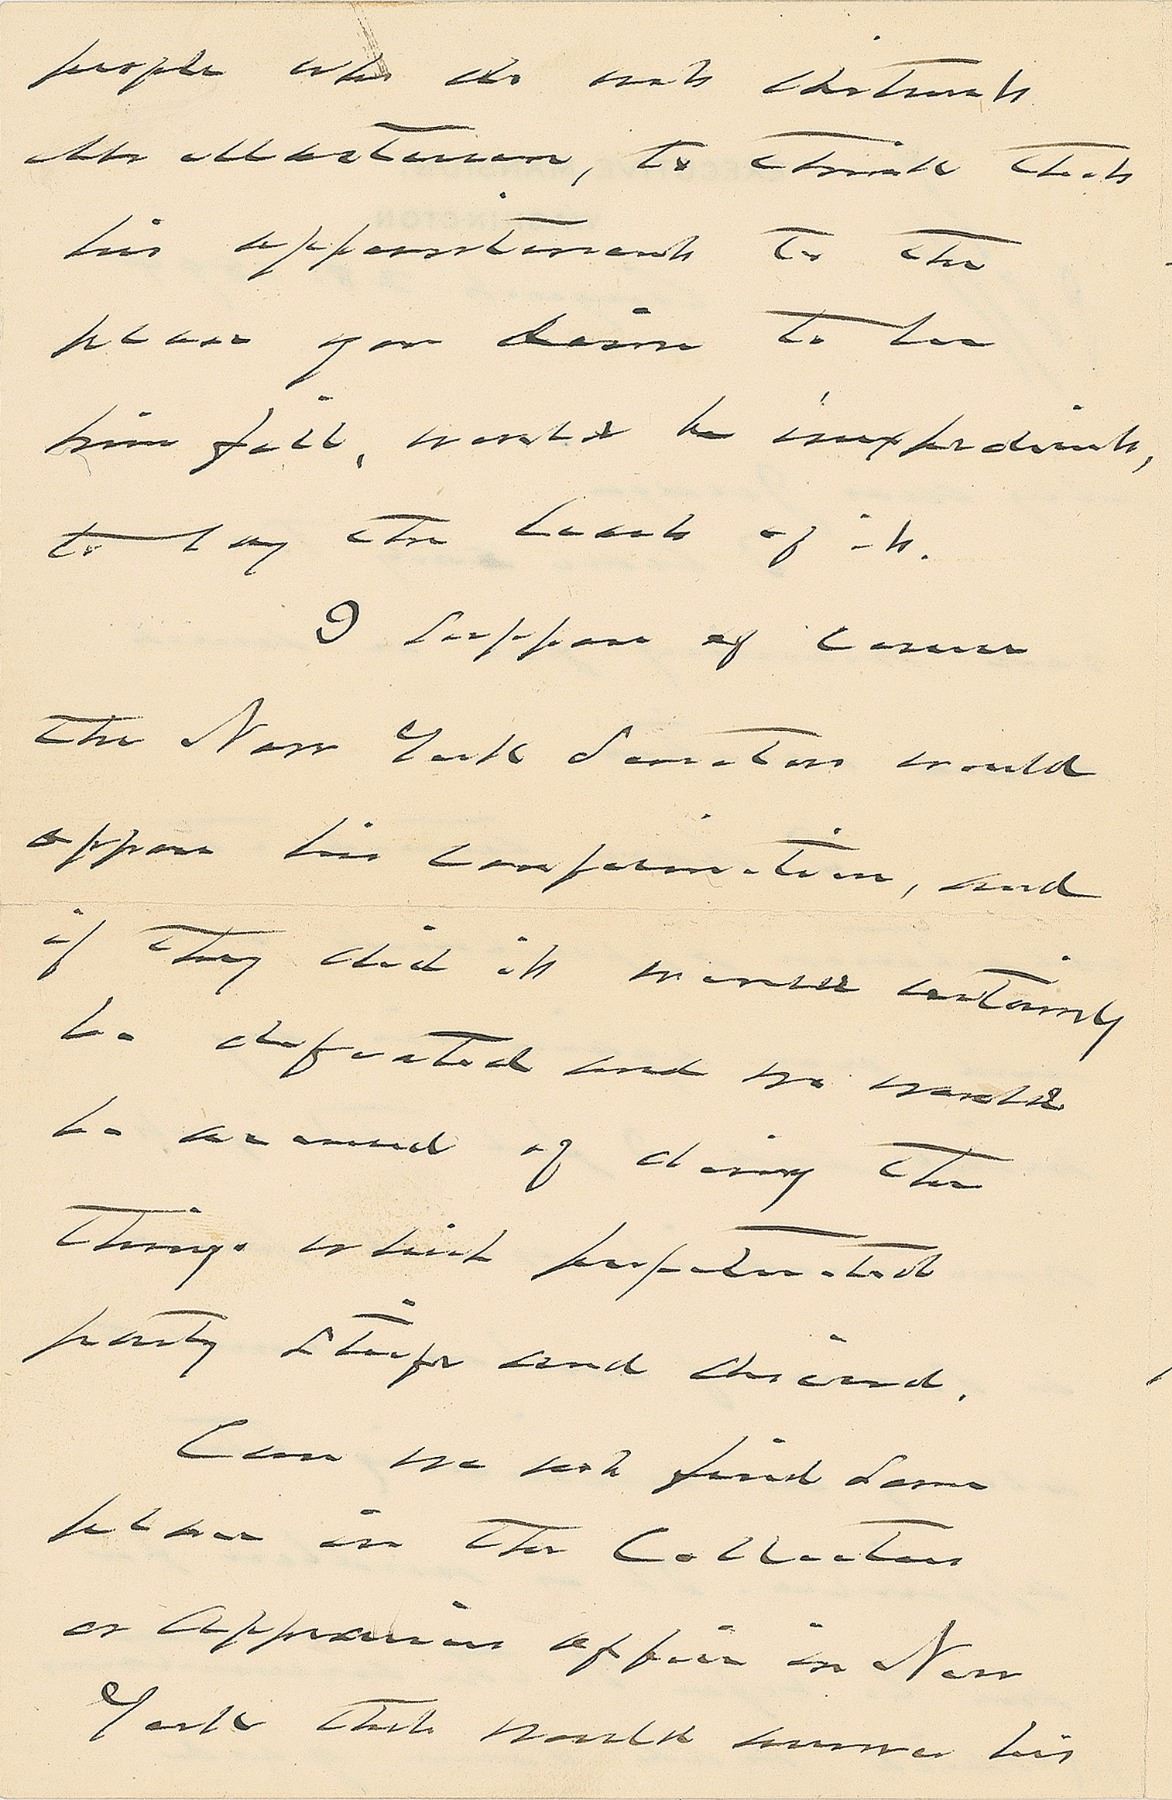 people who do not distrust
the Administration, to think that
his appointment to the
place you desire to see
him fill, would be inexpedient,
to say the least of it.
I suppose of course
the New York Senators would
oppose his confirmation, and
if they did it would certainly
be defeated and we would
be accused of doing the
things which perpetuated
party strife and discord.
Can we not find some
place in the Collectors
or Appraisers office in New
York that would answer his